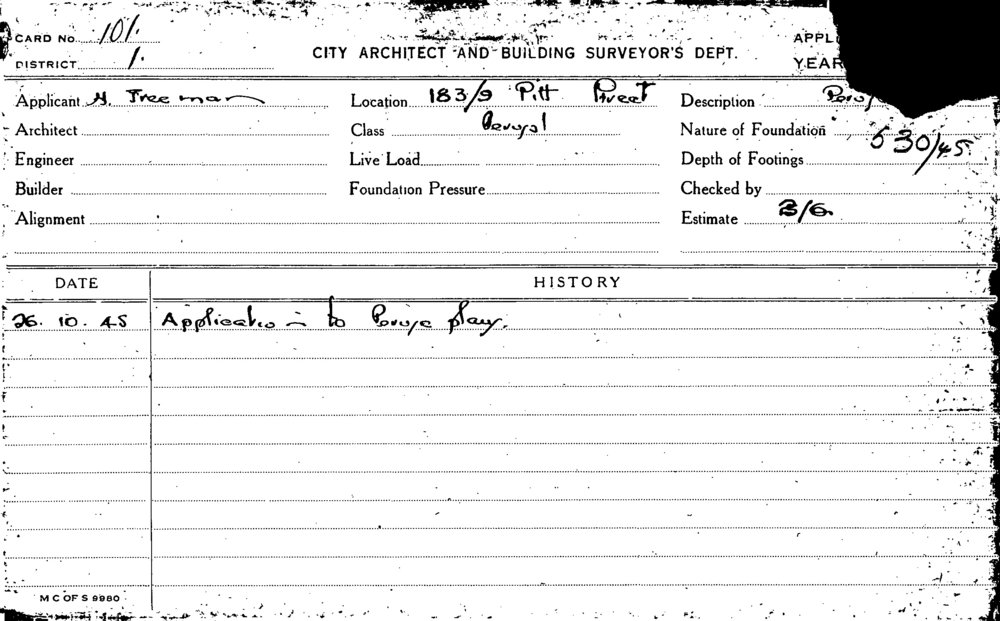 CARD No. 101.
DISTRICT 1.
CITY ARCHITECT AND BUILDING SURVEYOR'S DEPT.
APPL
YEAR
Applicant H. Freeman Location 183/9 Pitt Street Description
Architect Class Perusal Nature of Foundation 530/45
Engineer Live Load Depth of Footings
Builder Foundation Pressure Checked by
Alignment Estimate 2/6.
DATE HISTORY
26. 10. 45 Application to Peruse plans.
M C OF S 9980